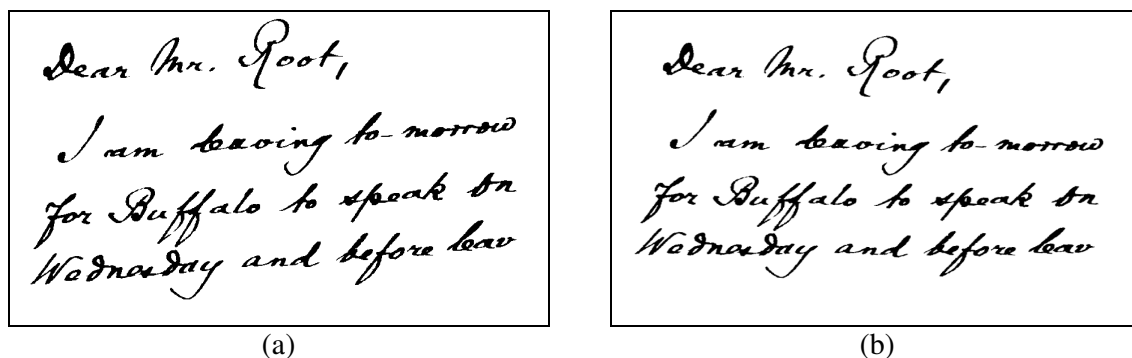 Dear Mr. Root,
I am leaving to-morrow
for Buffalo to speak on
Wednesday and before leav
(a)
Dear Mr. Root,
I am leaving to-morrow
for Buffalo to speak on
Wednesday and before leav
(b)